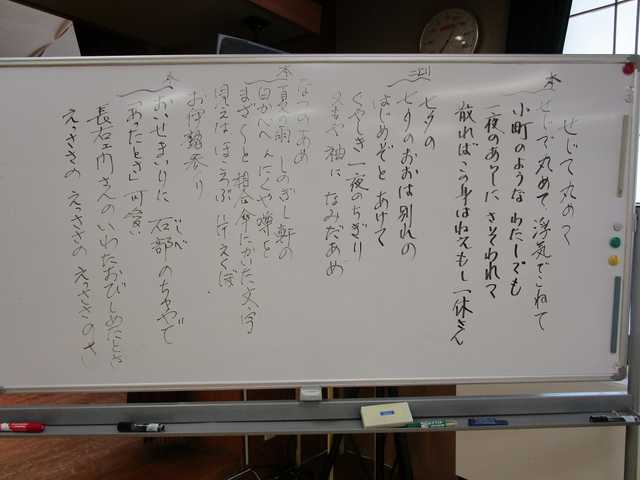 せじで丸めて
本 せじで丸めて 浮気でこねて
小町のような わたしでも
一夜のあらしに さそわれて
散れば この身は ねえもし 一休さん
二上り
七夕の
七夕のおおは別れの
はじめぞと あけて
くやしき 一夜のちぎり
袖に なみだあめ
なつのあめ
本 夏の雨 しのぎし軒の
白かべへ
まざ〱と 相合傘にかいた文字
見えは ほころぶ 片えくぼ
お伊勢参り
本 おいせまいりに 石部(いしべ)のちゃやで
「あったとさ」 可愛い
長右ヱ門さんの いわたおび しめたとさ
えっささの えっささの えっさきのさ